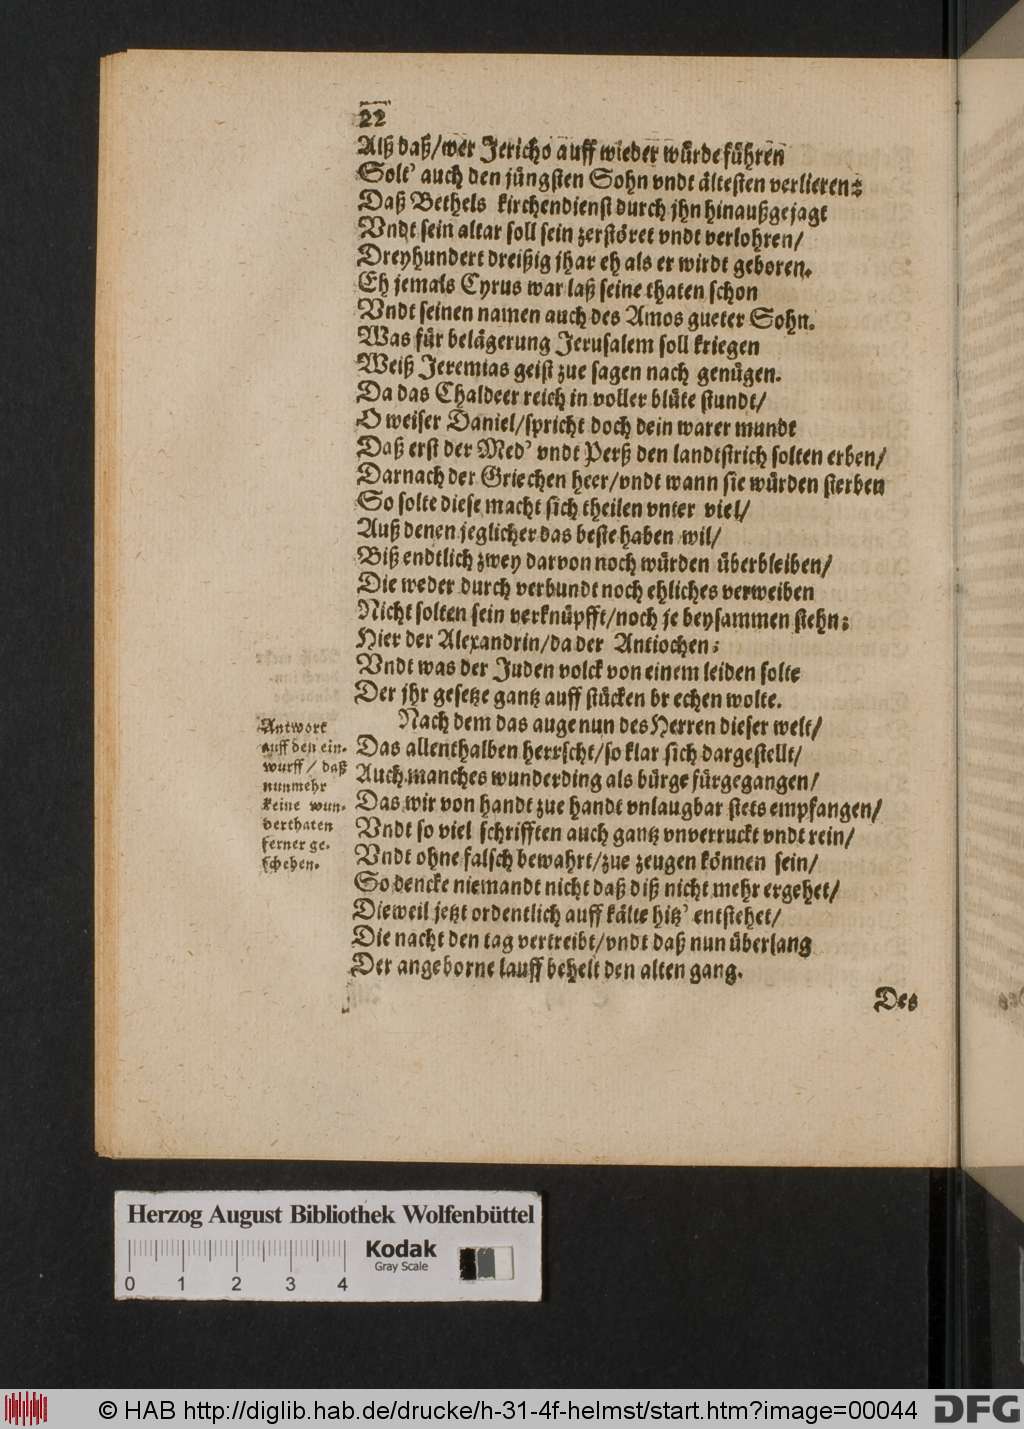 22
Alß daß/wer Jericho auff wieder würde führen
Solt' auch den jüngsten Sohn vndt ältesten verlieren:
Daß Bethels kirchendienst durch jhn hinaußgejagt
Vndt sein altar soll sein zerstöret vndt verlohren/
Dreyhundert dreißig jhar eh als er wirdt geboren.
Eh jemals Cyrus war laß seine thaten schon
Vndt seinen namen auch des Amos gueter Sohn.
Was für belägerung Jerusalem soll kriegen
Weiß Jeremias geist zue sagen nach genügen.
Da das Chaldeer reich in voller blüte stundt/
O weiser Daniel/spricht doch dein warer mundt
Daß erst der Med' vndt Perß den landtstrich solten erben/
Darnach der Griechen heer/vndt wann sie würden sterben
So solte diese macht sich theilen vnter viel/
Auß denen jeglicher das beste haben wil/
Biß endtlich zwey darvon noch würden überbleiben/
Die weder durch verbundt noch ehliches verweiben
Nicht solten sein verknüpfft/noch je beysammen stehn;
Hier der Alexandrin/da der Antiochen;
Vndt was der Juden volck von einem leiden solte
Der jhr gesetze gantz auff stücken br echen wolte.
Nach dem das auge nun des Herren dieser welt/
Das allenthalben herrscht/so klar sich dargestellt/
Auch manches wunderding als bürge fürgegangen/
Das wir von handt zue handt vnlaugbar stets empfangen/
Vndt so viel schrifften auch gantz vnverruckt vndt rein/
Vndt ohne falsch bewahrt/zue zeugen können sein/
So dencke niemandt nicht daß diß nicht mehr ergehet/
Dieweil jetzt ordentlich auff kälte hitz' entstehet/
Die nacht den tag vertreibt/vndt daß nun überlang
Der angeborne lauff behelt den alten gang.
Antwort
auff den ein-
wurff / daß
nunmehr
keine wun-
derthaten
ferner ge-
schehen.
Des
Herzog August Bibliothek Wolfenbüttel
Kodak
Gray Scale
0 1 2 3 4
© HAB http://diglib.hab.de/drucke/h-31-4f-helmst/start.htm?image=00044
DFG